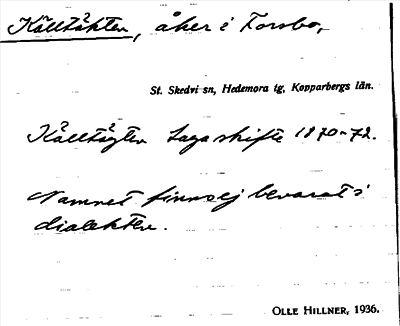 Källtäkten, åker i Forsbo,
St. Skedvi sn, Hedemora tg, Kopparbergs län.
Källtägten Laga skifte 1870-72.
Namnet finns ej bevarat i
dialekten.
OLLE HILLNER, 1936.